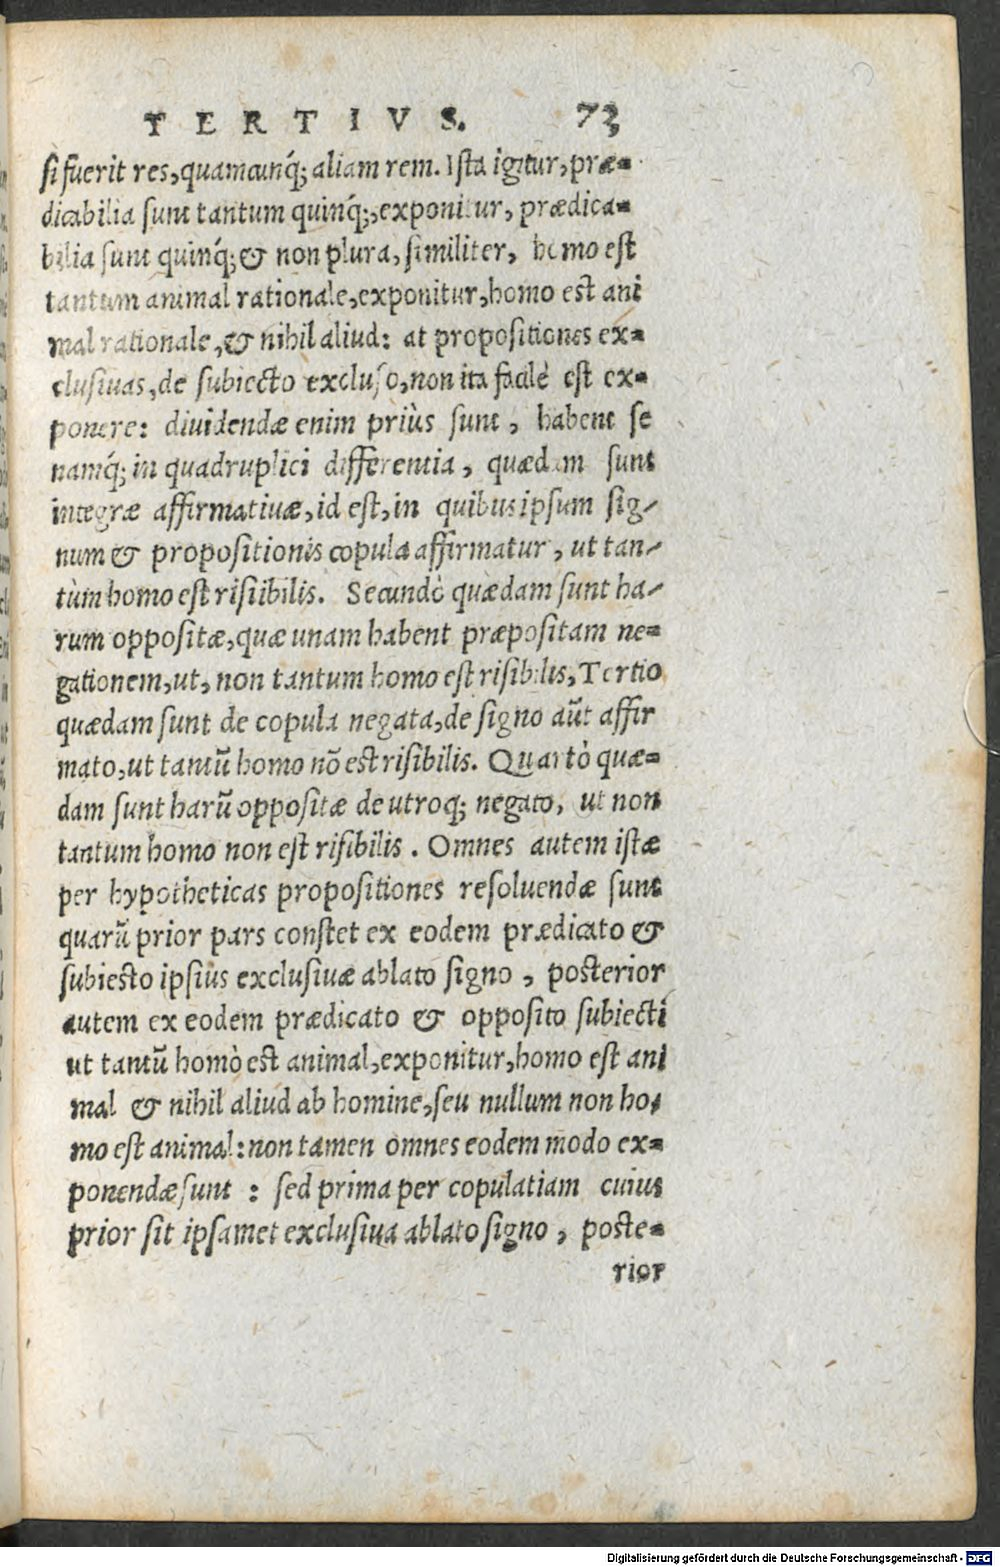 TERTIVS. 73
si fuerit res, quamcunq́; aliam rem. Ista igitur, præ-
dicabilia sunt tantum quinq́;, exponitur, prædica-
bilia sunt quinq́; & non plura, similiter, homo est
tantum animal rationale, exponitur, homo est ani
mal rationale, & nihil aliud: at propositiones ex-
clusiuas, de subiecto excluso, non ita facilè est ex-
ponere: diuidendæ enim priùs sunt, habent se
namq́; in quadruplici differentia, quædam sunt
integræ affirmatiuæ, id est, in quibus ipsum sig-
num & propositionis copula affirmatur, ut tan-
tùm homo est risiibilis. Secundò quædam sunt ha-
rum oppositæ, quæ unam habent præpositam ne-
gationem, ut, non tantum homo est risibilis, Tertio
quædam sunt de copula negata, de signo aũt affir
mato, ut tantũ homo nõ est risibilis. Quartò quæ-
dam sunt harũ oppositæ de utroq; negato, ut non
tantum homo non est risibilis. Omnes autem istæ
per hypotheticas propositiones resoluendæ sunt
quarũ prior pars constet ex eodem prædicato &
subiecto ipsius exclusiuæ ablato signo, posterior
autem ex eodem prædicato & opposito subiecti
ut tantũ homò est animal, exponitur, homo est ani
mal & nihil aliud ab homine, seu nullum non ho-
mo est animal: non tamen omnes eodem modo ex-
ponendæ sunt : sed prima per copulatiam cuius
prior sit ipsamet exclusiua ablato signo, poste-
rior
Digitalisierung gefördert durch die Deutsche Forschungsgemeinschaft - DFG